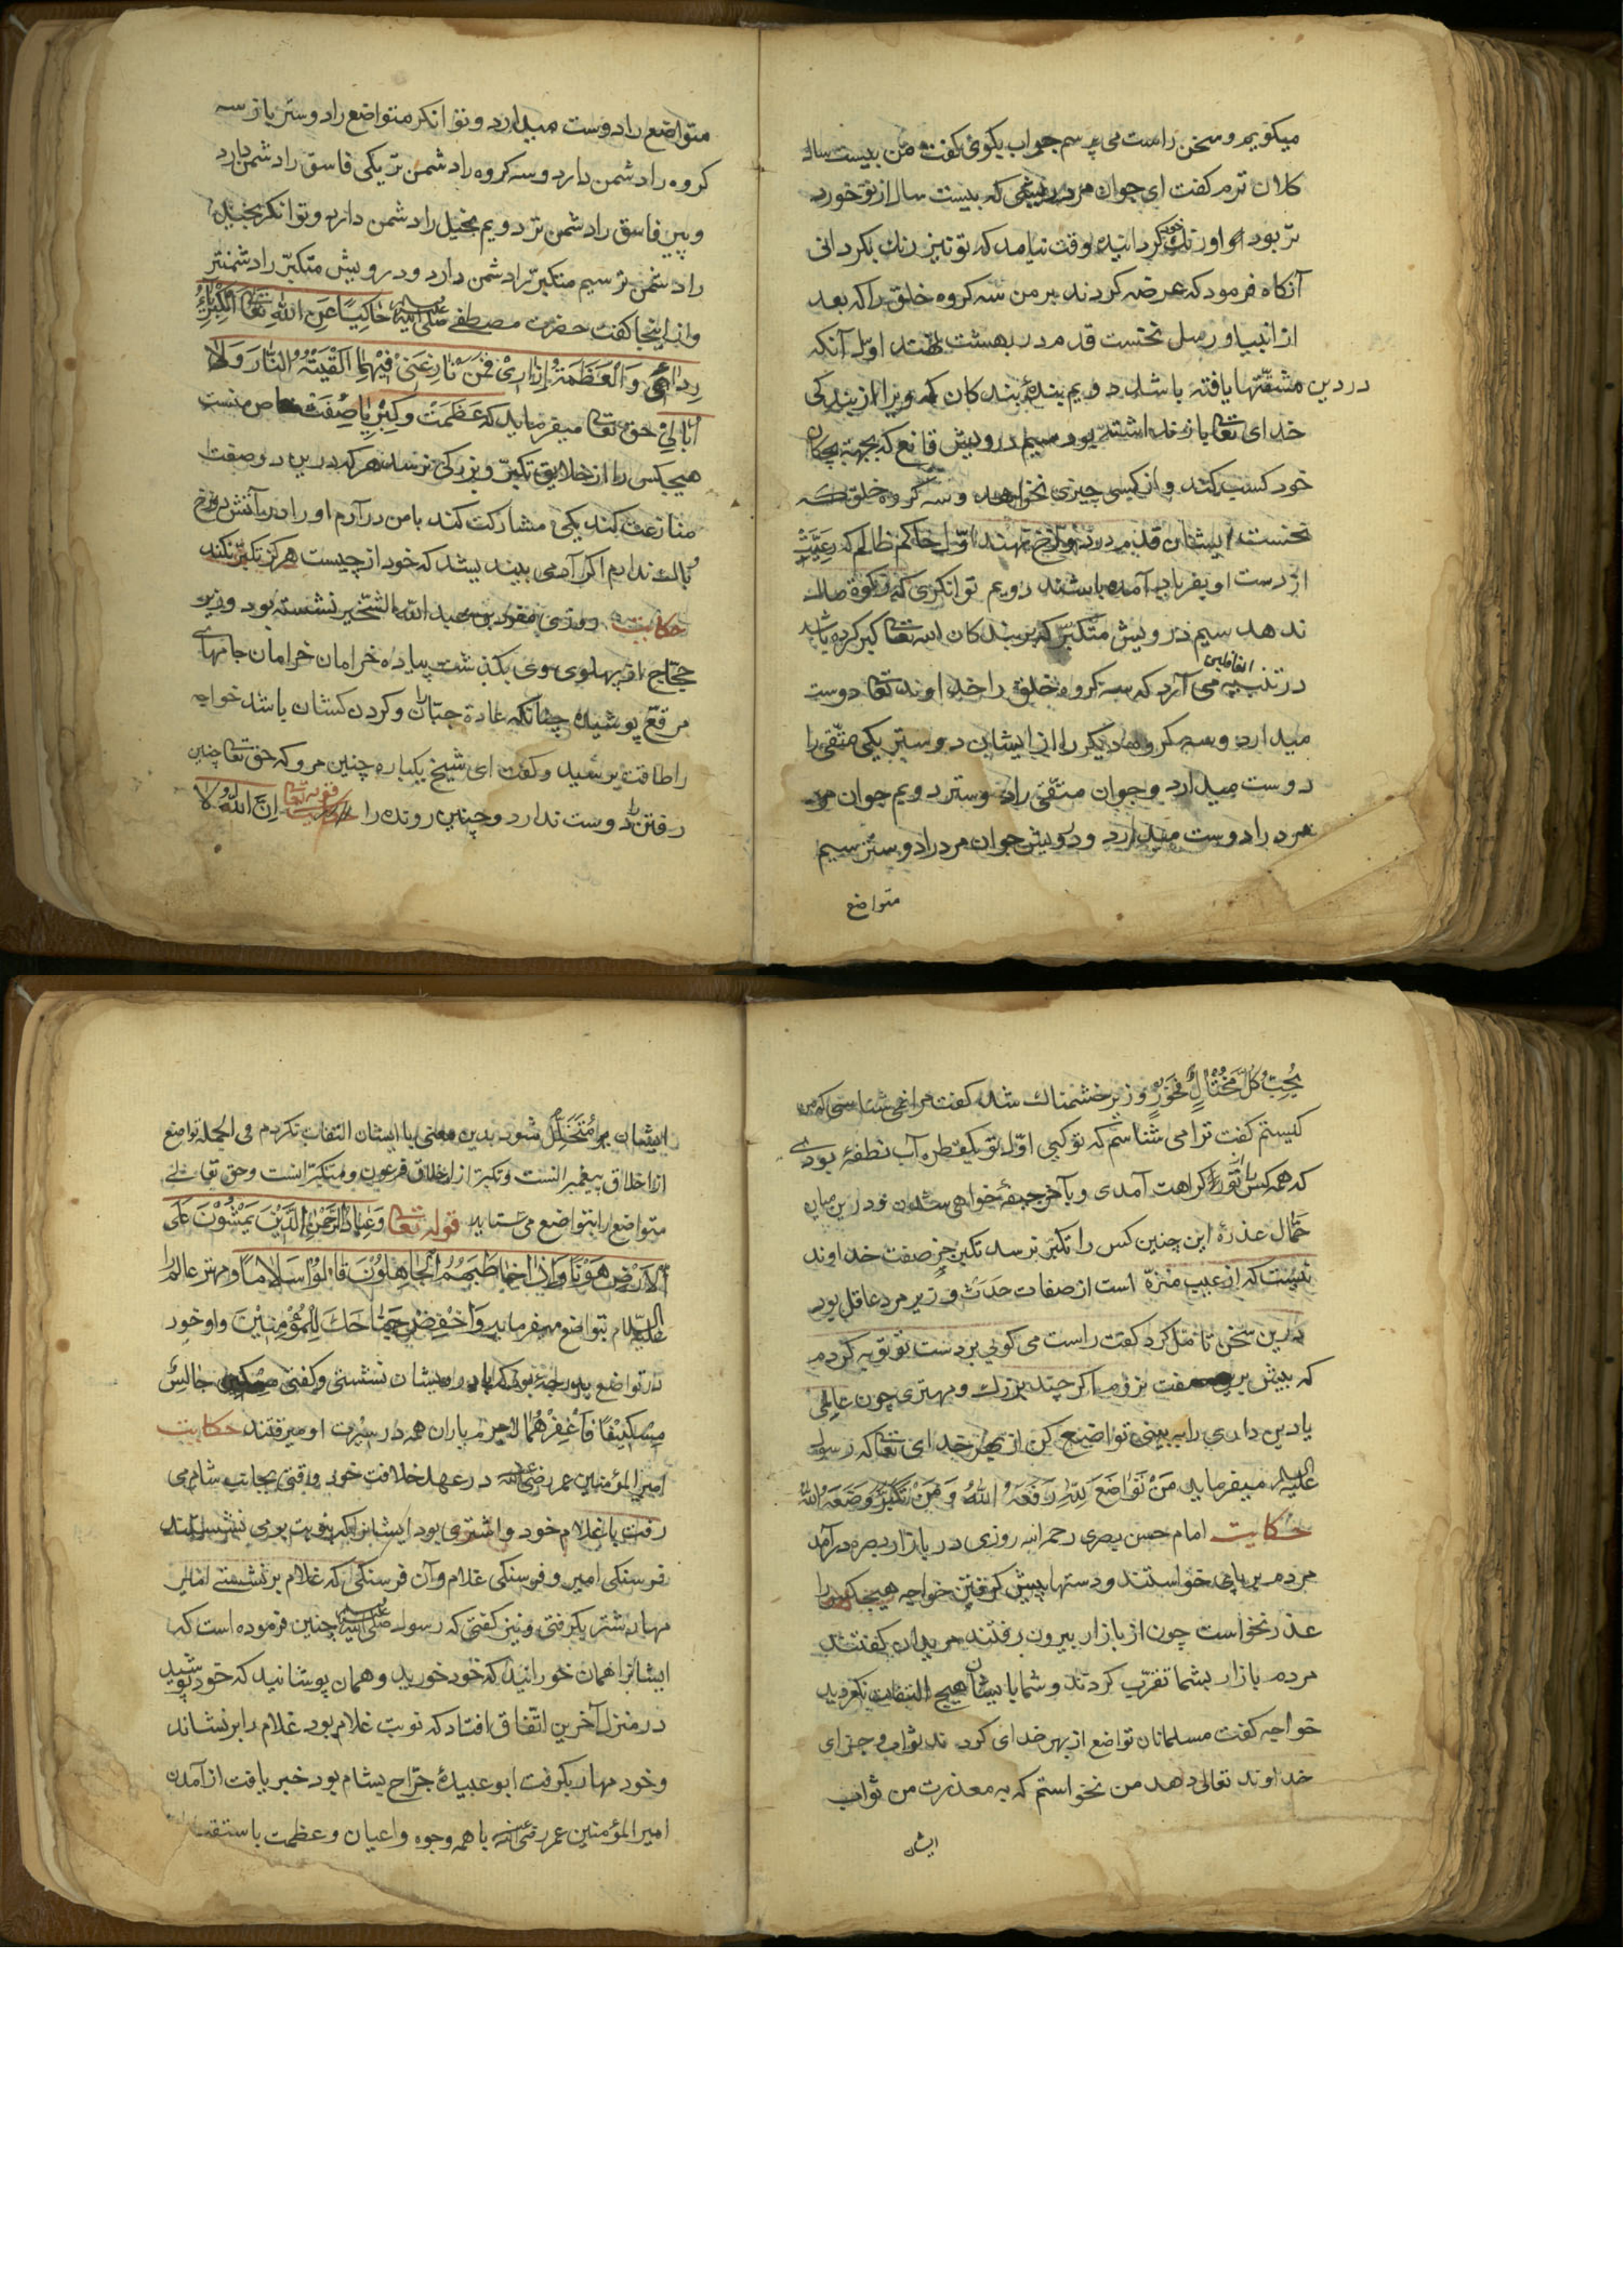 میکویم و سخن راست می پرسم جواب بکوی کفت من بیست ساله
کلان ترم کفت ای جوان مرد ریشی که بیست سال از تو خورد
تر بود او را رنک کردانیده وقت نیامد که تو نیز رنک بکردانی
آنکاه فرمود که عرضه کردند بر من سه کروه خلق را که بعد
از انبیا و رسل نخست قدم در بهشت نهند اول آنکه
در دین مشقتها یافته باشد دویم بندهٔ بندکان که ویرا از بندکی
خدای تعا باز نداشته بود سیم درویش قانع که بجهته بچکان
خود کسب کند و از کسی چیزی نخواهد و سه کروه خلق که
نخست ایشان قدم در دوزخ نهند اوّل حاکم ظالم که رعیّت
از دست او بفریاد آمده باشند دویم توانکری که زکوة مال
ندهد سیم درویش متکبّر که بر بندکان الله تعا کبر کرده باشد
در تنبیه الغافلین می آرد که سه کروه خلق را خداوند تعا دوست
میدارد و سه کروه دیکر را از ایشان دوستر یکی متّقی را
دوست میدارد و جوان متّقی را دوستر دویم جوان مرد
مرد را دوست میدارد و درویش جوان مرد را دوستر سیم
متواضع
متواضع را دوست میدارد و توانکر متواضع را دوستر باز سه
کروه را دشمن دارد و سه کروه را دشمن تر یکی فاسق را دشمن دارد
و پیر فاسق را دشمن تر دویم بخیل را دشمن دارد و توانکر بخیل
را دشمن تر سیم متکبّر را دشمن دارد و درویش متکبّر را دشمنتر
و از اینجا کفت حضرت مصطفی صلی الله علیه وسلم حَاکِیًا عَنِ اللهِ تعا اَلْکِبْرِیَاءُ
رِدَائِی وَالْعَظَمَةُ اِزَارِیْ فَمَنْ نَازَعَنِیْ فِیْهِمَا اَلْقَیْتُهُ النَّارَ وَلَا
اُبَالِیْ حق تعا میفرماید که عَظَمَتْ و کِبْرِیَا صِفَت خاص منست
هیچکس را از خلایق تکبّر و بزرکی نرسد هر که درین دو صفت
منازعت کند یعنی مشارکت کند با من درآرم او را در آتش دوزخ
و باک ندارم اکر آدمی بیندیشد که خود از چیست هرکز تکبّر نکند
حکایت روزی مطرّف بن عبد الله الشخّیر نشسته بود وزیر
حجّاج از پهلوی وی بکذشت پیاده خرامان خرامان جامهای
مرقع پوشیده چنانکه عادة جبّاران و کردن کشان باشد خواجه
را طاقت نرسید و کفت ای شیخ یکباره چنین مرو که حق تعا چنین
رفتن را دوست ندارد و چنین رونده را قوله تعا اِنَّ اللهَ لَا
یُحِبُّ کُلَّ مُخْتَالٍ فَخُوْرٍ وزیر خشمناک شد کفت مرا نمی شناسی که من
کیستم کفت ترا می شناسم که تو کیی اوّل تو یکقطره آب نطفهٔ بودی
که همه کس را از تو کراهت آمدی و بآخر جیفهٔ خواهی شدن و درین میان
حمّال عذرهٔ این چنین کس را تکبّر نرسد تکبّر جز صفت خداوند
نیست که از عیب منزّه است از صفات حَدَث وزیر مرد عاقل بود
درین سخن تأمّل کرد کفت راست می کویی بر دست تو توبه کردم
که بیش برین صفت نروم اکر چند بزرک و مهتری چون عالمی
یا دین داری را ببینی تواضع کن از بهر خدای تعا که رسول
علیه السلام میفرماید مَنْ تَوَاضَعَ لِلّٰهِ رَفَعَهُ اللهُ وَ مَنْ تَکَبَّرَ وَضَعَهُ اللهُ
حکایت امام حسن بصری رحمه الله روزی در بازار بصره درآمد
مردم بر پای خواستند و دستها پیش کرفتن خواجه هیچکس را
عذر نخواست چون از بازار بیرون رفتند مریدان کفتند
مردم بازار بشما تقرّب کردند و شما با ایشان هیچ التفات نکردید
خواجه کفت مسلمانان تواضع از بهر خدای کردند ثواب و جزای
خداوند تعالی دهد من نخواستم که به معذرت من ثواب
ایشان
ایشان متخلّل شود بدین معنی با ایشان التفات نکردم فی الجمله تواضع
از اخلاق پیغمبرانست و تکبّر از اخلاق فرعون و متکبّرانست و حق تعالی
متواضع را بتواضع می ستاید قوله تعا وَعِبَادُ الرَّحْمٰنِ الَّذِیْنَ یَمْشُوْنَ عَلَی
الْاَرْضِ هَوْنًا وَاِذَا خَاطَبَهُمُ الْجَاهِلُوْنَ قَالُوْا سَلَامًا و مهتر عالم را
علیه السلام بتواضع میفرماید وَاخْفِضْ جَنَاحَکَ لِلْمُؤْمِنِیْنَ و او خود
در تواضع بدرجهٔ بود که با درویشان نشستی و کفتی مسکین جالس
مِسْکِیْنًا فَاغْفِرْ هُمَا لاجرم یاران همه در سیرت او میرفتند حکایت
امیر المؤمنین عمر رضی الله عنه در عهد خلافت خود وقتی بجانب شام می
رفت با غلام خود و اشتری بود ایشانرا که بنوبت بر می نشستند
فرسنکی امیر و فرسنکی غلام و آن فرسنکی که غلام بر نشستی امیر
مهار شتر بکرفتی و نیز کفتی که رسول صلی الله علیه وسلم چنین فرموده است که
ایشانرا همان خورانید که خود خورید و همان پوشانید که خود پوشید
در منزل آخرین اتّفاق افتاد که نوبت غلام بود غلام را بر نشاند
و خود مهار بکرفت ابو عبیدهٔ جرّاح بشام بود خبر یافت از آمدن
امیر المؤمنین عمر رضی الله عنه با همه وجوه و اعیان و عظمت باستقبال